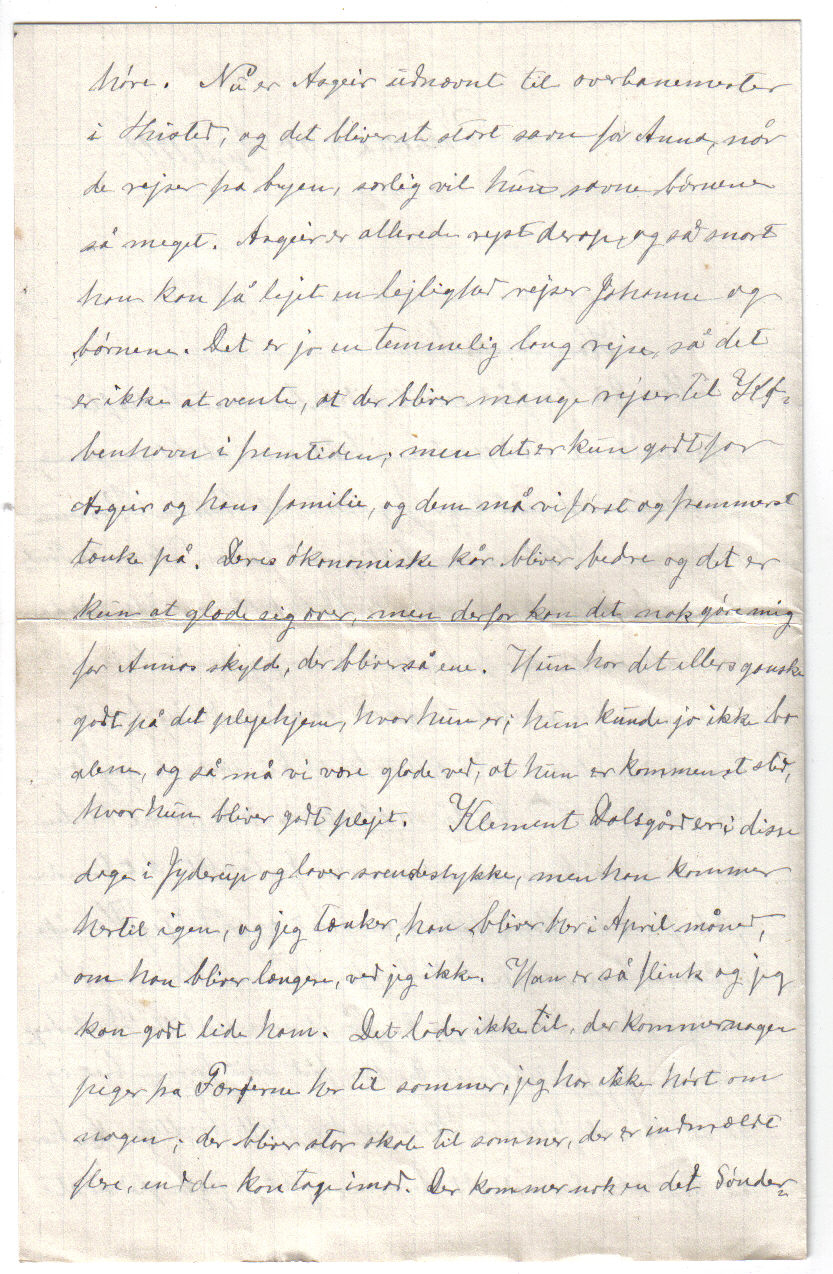 høre. Nu er Asgeir udnævnt til overbanemester
i Thisted, og det bliver et stort savn for Anna, når
de rejser fra byen, særlig vil hun savne børnene
så meget. Asgeir er allerede rejst derop, og så snart
han kan få lejet en lejlighed rejser Johanne og
børnene. Det er jo en temmelig lang rejse, så det
er ikke at vente, at der bliver mange rejser til Kø-
benhavn i fremtiden; men det er kun godt for
Asgeir og hans familie, og dem må vi først og fremmerst
tænke på. Deres økonomiske kår bliver bedre og det er
kun at glæde sig over, men derfor kan det nok gøre mig
for Annas skyld, der bliver så ene. Hun har det ellers ganske
godt på det plejehjem, hvor hun er; hun kunde jo ikke bo
alene, og så må vi være glade ved, at hun er kommen et sted,
hvor hun bliver godt plejet. Klement Dalsgård er i disse
dage i Jyderup og laver svendestykke, men han kommer
hertil igen, og jeg tænker, han bliver her i April måned,
om han bliver længere, ved jeg ikke. Han er så flink og jeg
kan godt lide ham. Det lader ikke til, der kommer nogen
piger fra Færøerne her til sommer, jeg har ikke hørt om
nogen; der bliver stor skole til sommer, der er indmældt
flere, end de kan tage imod. Der kommer nok en del Sønder-